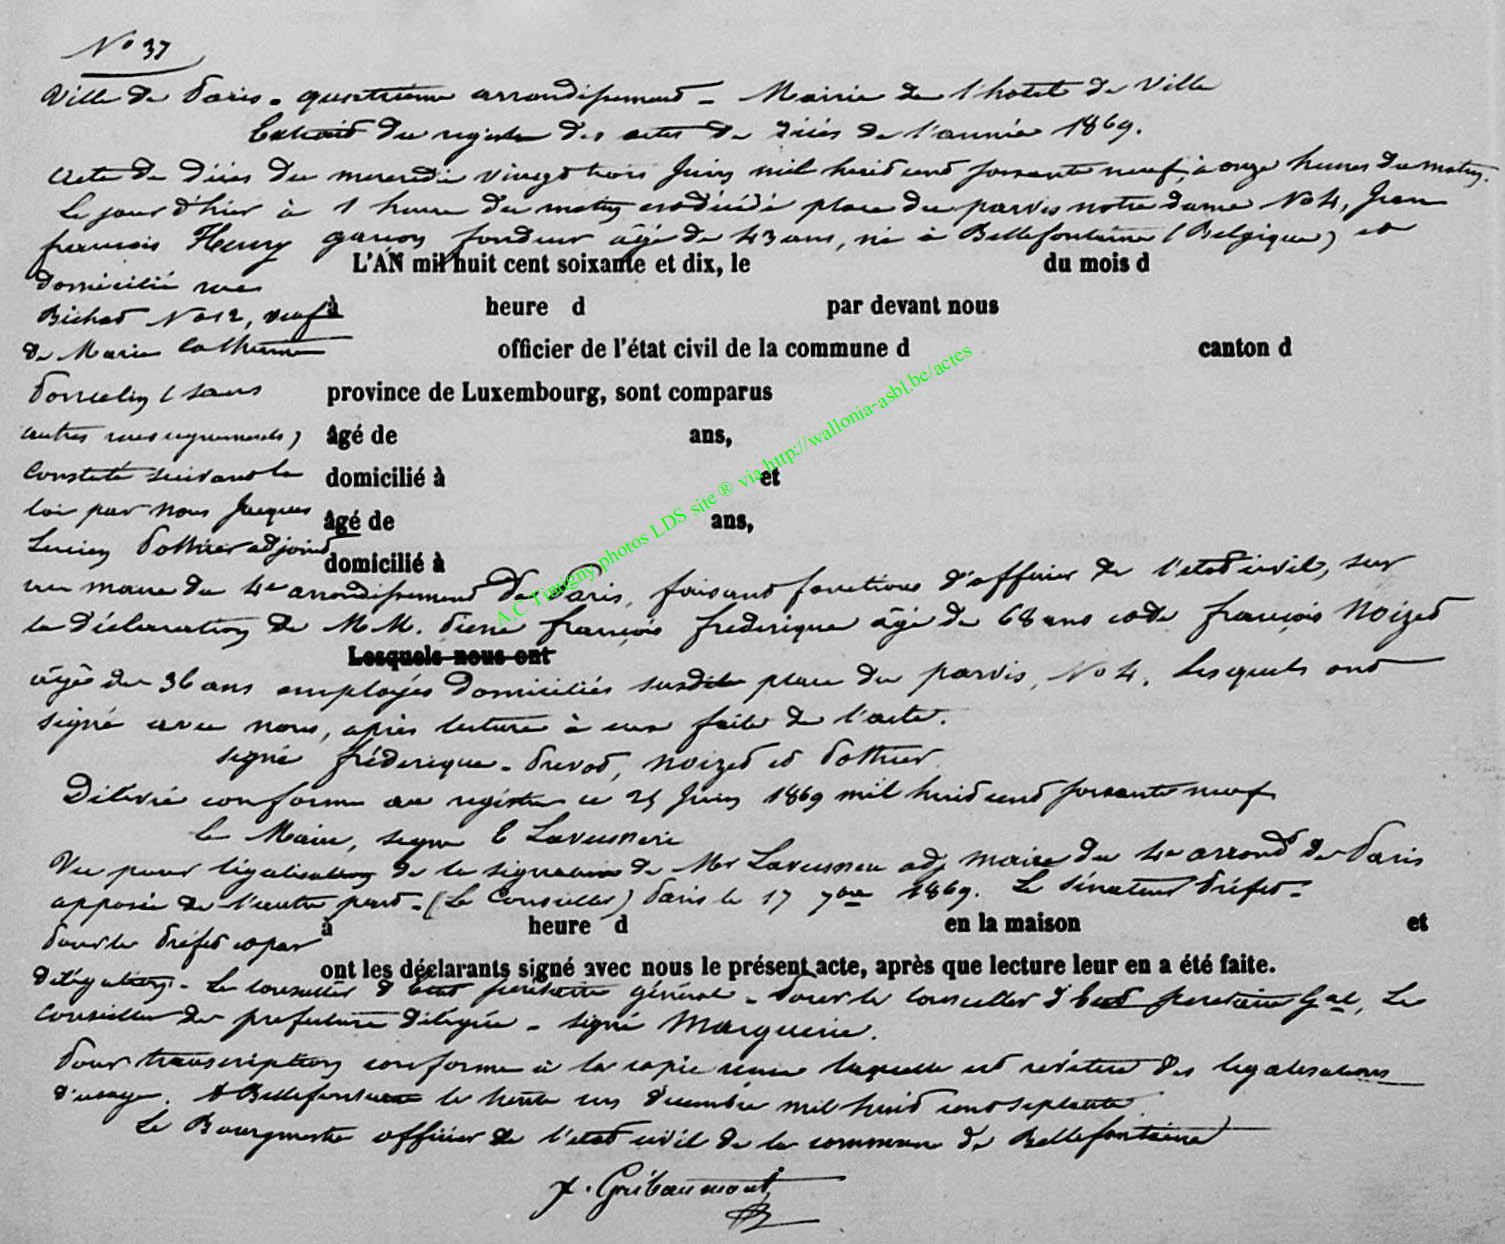 No 37
Ville de Paris - quatrième arrondissement - Mairie de l'hotel de Ville
Extrait du registre des actes de décès de l'année 1869.
Acte de décès du mercredi vingt trois Juin mil huit cent soixante neuf, à onze heures du matin.
Le jour d'hier à 1 heure du matin est décédé place du parvis notre dame No 4, Jean
françois Henry garçon fondeur âgé de 43 ans, né à Bellefontaine (Belgique) et
L'AN mil huit cent soixante et dix, le du mois d
domicilié rue
à heure d par devant nous
Bichat No 12, veuf
de Marie Catherine
officier de l'état civil de la commune d canton d
Poncelin (sans
province de Luxembourg, sont comparus
autres renseignements)
âgé de ans,
Constaté suivant la
domicilié à et
loi par nous Jacques
âgé de ans,
Lucien Pothier adjoint
domicilié à
au maire du 4e arrondissement de Paris, faisant fonctions d'officier de l'etat civil, sur
la déclaration de MM. Pierre françois frederique âgé de 68 ans et de françois Noizet
Lesquels nous ont
âgé de 36 ans employés domiciliés susdite place du parvis, No 4. Lesquels ont
signé avec nous, après lecture à eux faite de l'acte.
signé fréderique - Prevot, Noizet et Pothier
Délivré conforme au registre ce 25 Juin 1869 mil huit cent soixante neuf
le Maire, signé
Vu pour légalisation de la signature de Mr adj maire du 4e arrondt de Paris
apposée de l'autre part - (Le Conseiller) Paris le 17 7bre 1869. Le Sénateur Préfet -
à heure d en la maison et
Pour le Préfet et par
ont les déclarants signé avec nous le présent acte, après que lecture leur en a été faite.
délégation - Le conseiller d'Etat secrétaire général - Pour le conseiller d'Etat secretaire Gal, Le
Conseiller de prefecture délégué - signé Marguerie.
Pour transcription conforme à la copie laquelle est revêtue des legalisations
d'usage. A Bellefontaine le trente un décembre mil huit cent septante
Le Bourgmestre officier de l'etat civil de la commune de Bellefontaine
Gribaumont
A.C Tintigny photos LDS site ® via http://wallonia-asbl.be/actes